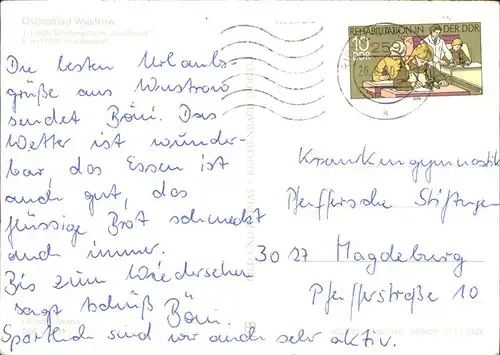 Ostseebad Wustrow
Die besten Urlaubs-
grüße aus Wustrow
sendet Böni. Das
Wetter ist wunder-
bar, das Essen ist
auch gut, das
flüssige Brot schmeckt
auch immer.
Bis zum Wiedersehen
sagt tschüß Böni.
Sportlich sind wir auch sehr aktiv.
REHABILITATION IN DER DDR
10
DDR
Krankengymnastik
Pfeiffersche Stiftungen
3027 Magdeburg
Pfeifferstraße 10